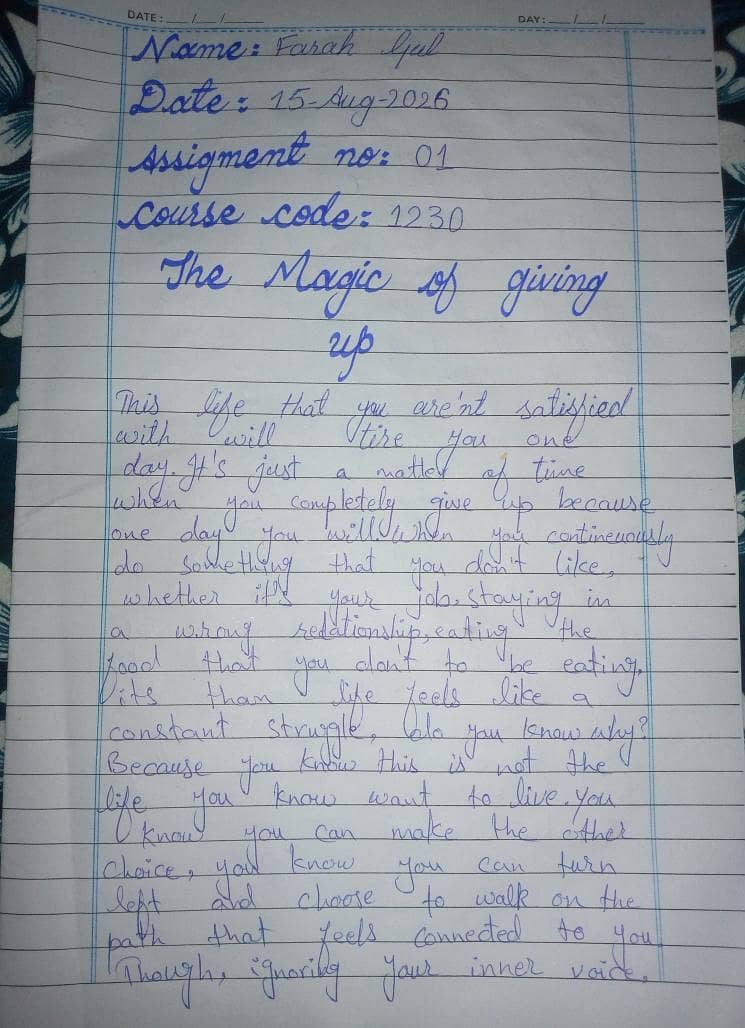 DATE: __/__/__ DAY: __/__/__
Name: Farah Gul
Date: 15-Aug-2026
Assigment no: 01
Course code: 1230
The Magic of giving
up
This life that you are'nt satisfied
with will tire you one
day. It's just a matter of time
when you completely give up because
one day you will. When you contineuously
do something that you don't like,
whether it's your job, staying in
a wrong redationship, eating the
food that you don't to be eating,
its than life feels like a
constant struggle, do you know why?
Because you know this is not the
life you know want to live. You
know you can make the other
choice, you know you can turn
left and choose to walk on the
path that feels connected to you
Though, ignoring your inner voice.